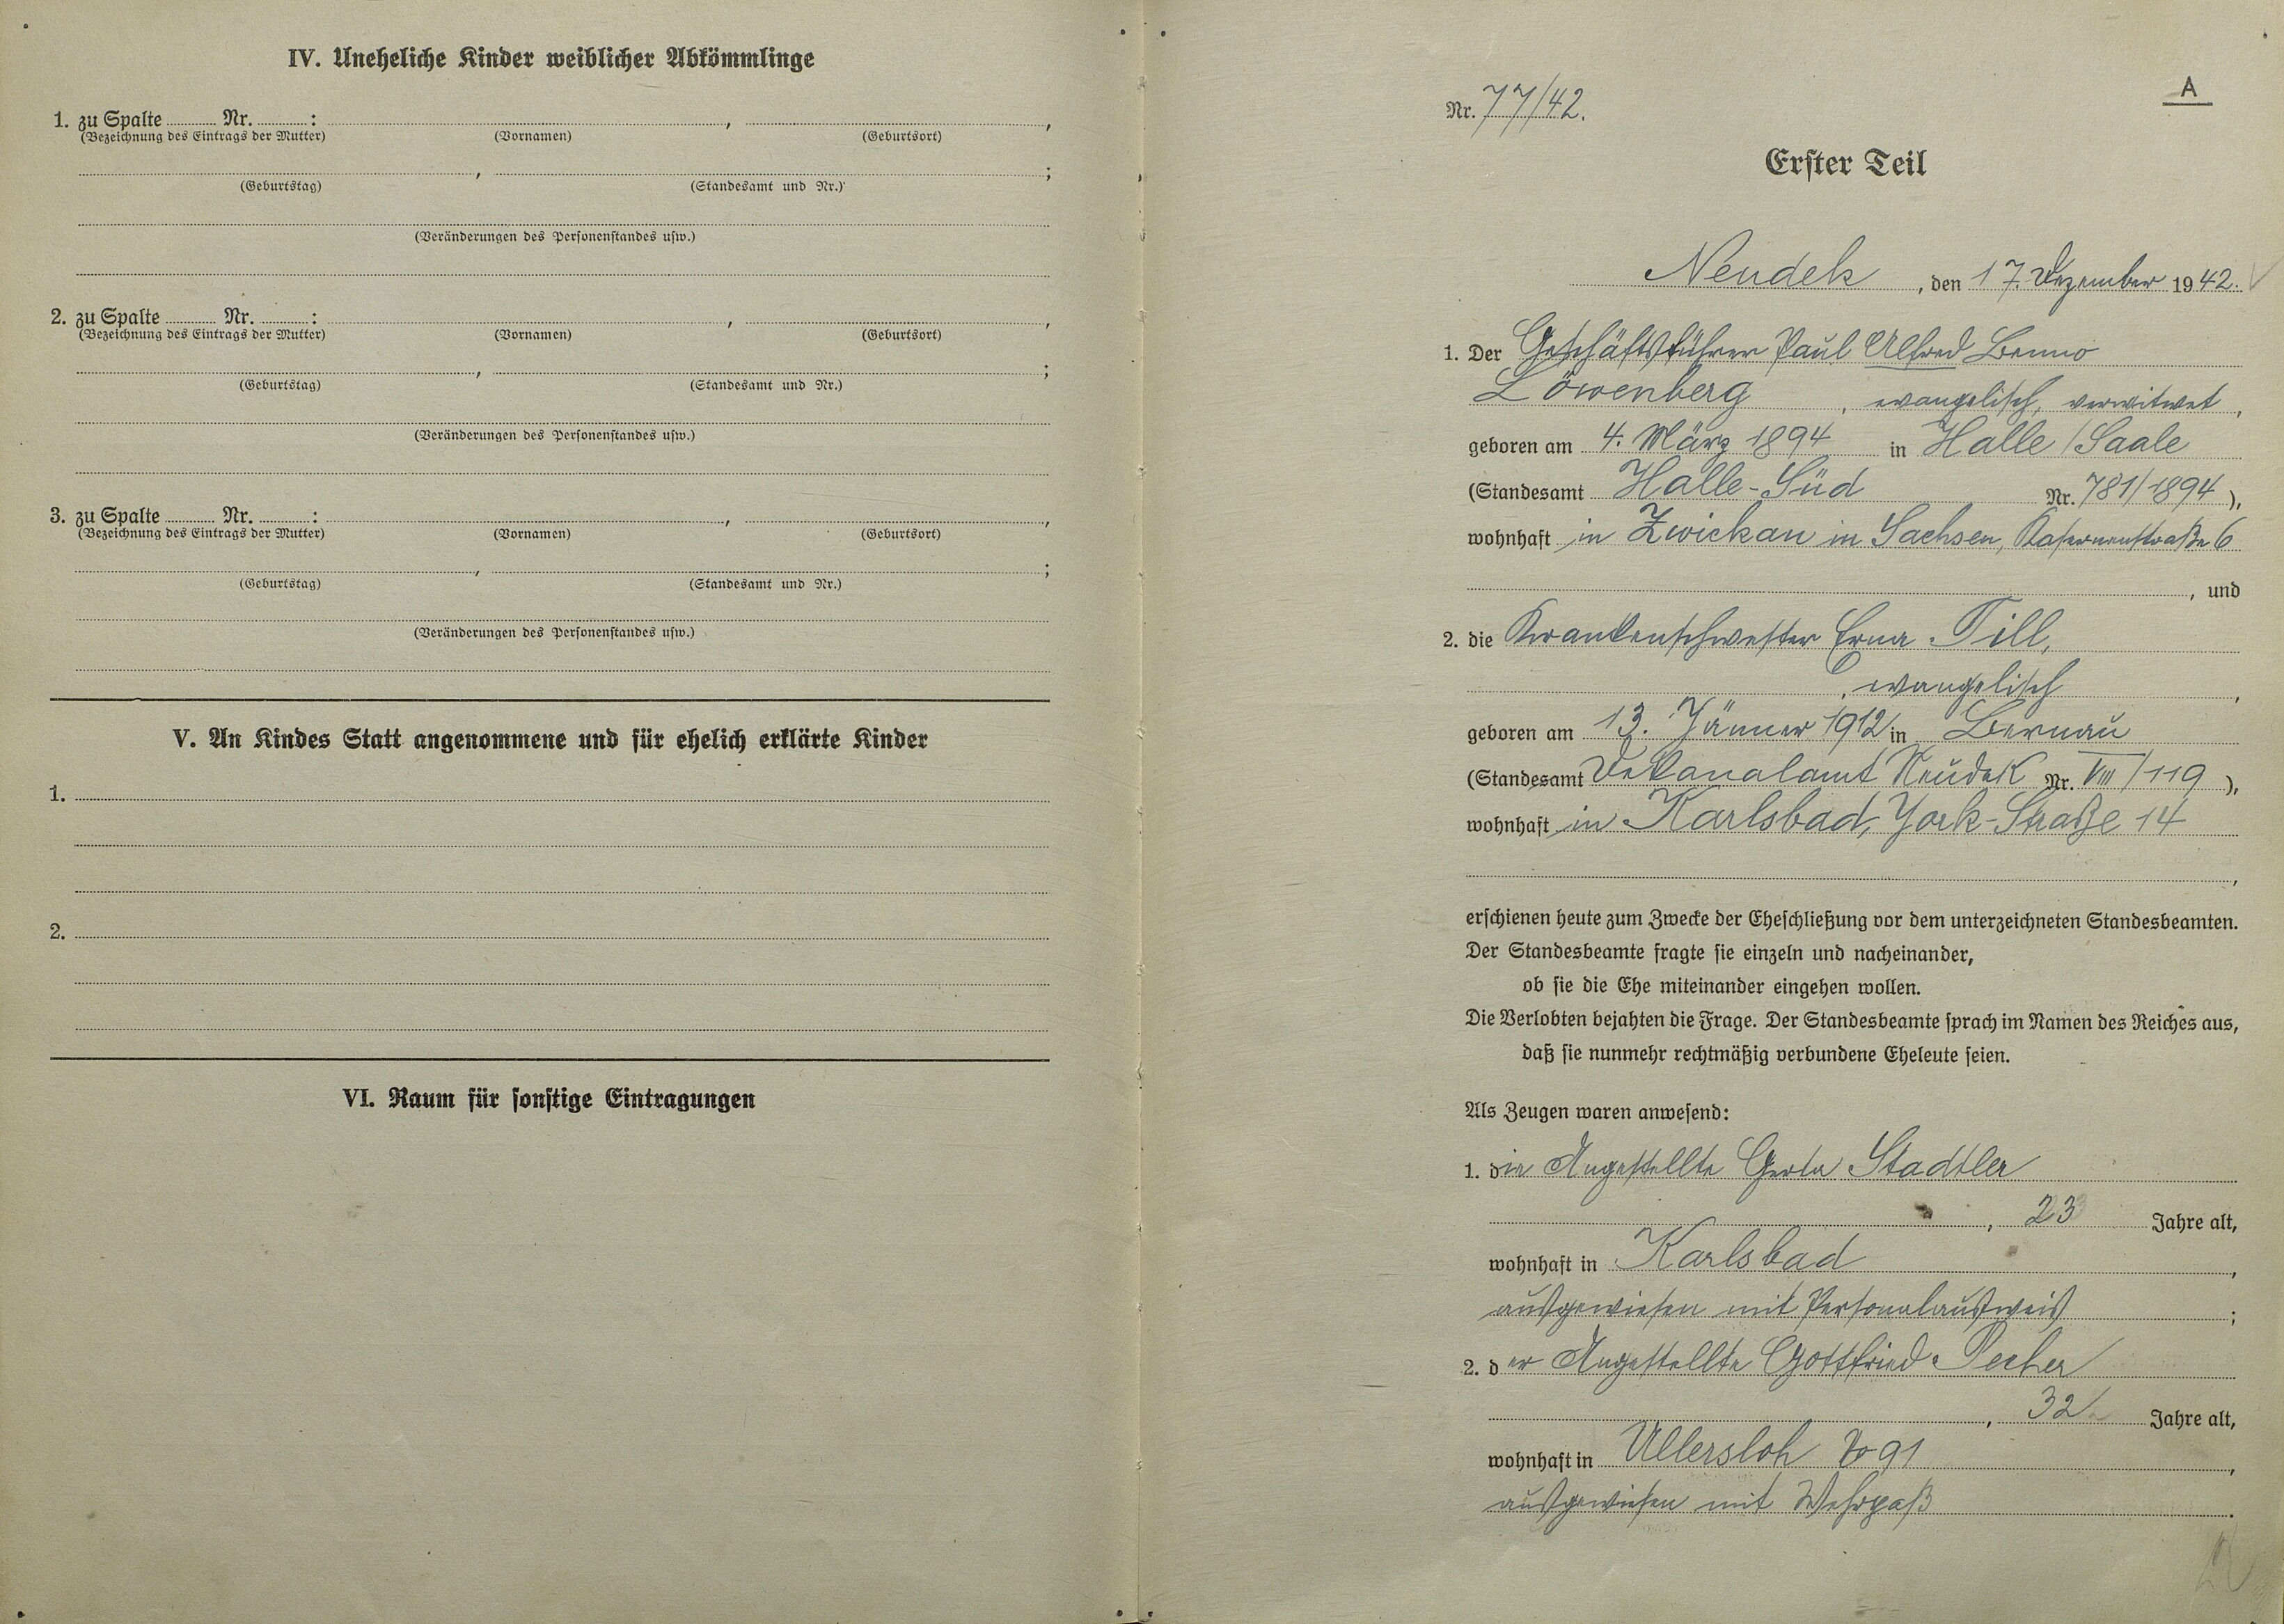 IV. Uneheliche Kinder weiblicher Abkömmlinge
1. zu Spalte ........ Nr. ........ :
(Bezeichnung des Eintrags der Mutter) (Vornamen) (Geburtsort)
(Geburtstag) (Standesamt und Nr.)
(Veränderungen des Personenstandes usw.)
2. zu Spalte ........ Nr. ........ :
(Bezeichnung des Eintrags der Mutter) (Vornamen) (Geburtsort)
(Geburtstag) (Standesamt und Nr.)
(Veränderungen des Personenstandes usw.)
3. zu Spalte ........ Nr. ........ :
(Bezeichnung des Eintrags der Mutter) (Vornamen) (Geburtsort)
(Geburtstag) (Standesamt und Nr.)
(Veränderungen des Personenstandes usw.)
V. An Kindes Statt angenommene und für ehelich erklärte Kinder
1.
2.
VI. Raum für sonstige Eintragungen
A
Nr. 77/42.
Erster Teil
Neudek, den 17. Dezember 1942.
1. Der Geschäftsführer Paul Alfred Benno
Löwenberg, evangelisch, verwitwet,
geboren am 4. März 1894 in Halle/Saale
(Standesamt Halle-Süd Nr. 781/1894),
wohnhaft in Zwickau in Sachsen, Kasernenstraße 6
, und
2. die Krankenschwester Erna Till,
, evangelisch,
geboren am 13. Jänner 1912 in Bernau
(Standesamt Dekanalamt Neudek Nr. VIII/119),
wohnhaft in Karlsbad, York-Straße 14
,
erschienen heute zum Zwecke der Eheschließung vor dem unterzeichneten Standesbeamten.
Der Standesbeamte fragte sie einzeln und nacheinander,
ob sie die Ehe miteinander eingehen wollen.
Die Verlobten bejahten die Frage. Der Standesbeamte sprach im Namen des Reiches aus,
daß sie nunmehr rechtmäßig verbundene Eheleute seien.
Als Zeugen waren anwesend:
1. die Angestellte Gerta Stadtler
, 23 Jahre alt,
wohnhaft in Karlsbad,
ausgewiesen mit Personalausweis;
2. der Angestellte Gottfried Pecher
, 32 Jahre alt,
wohnhaft in Ullersloh 91,
ausgewiesen mit Wehrpaß.